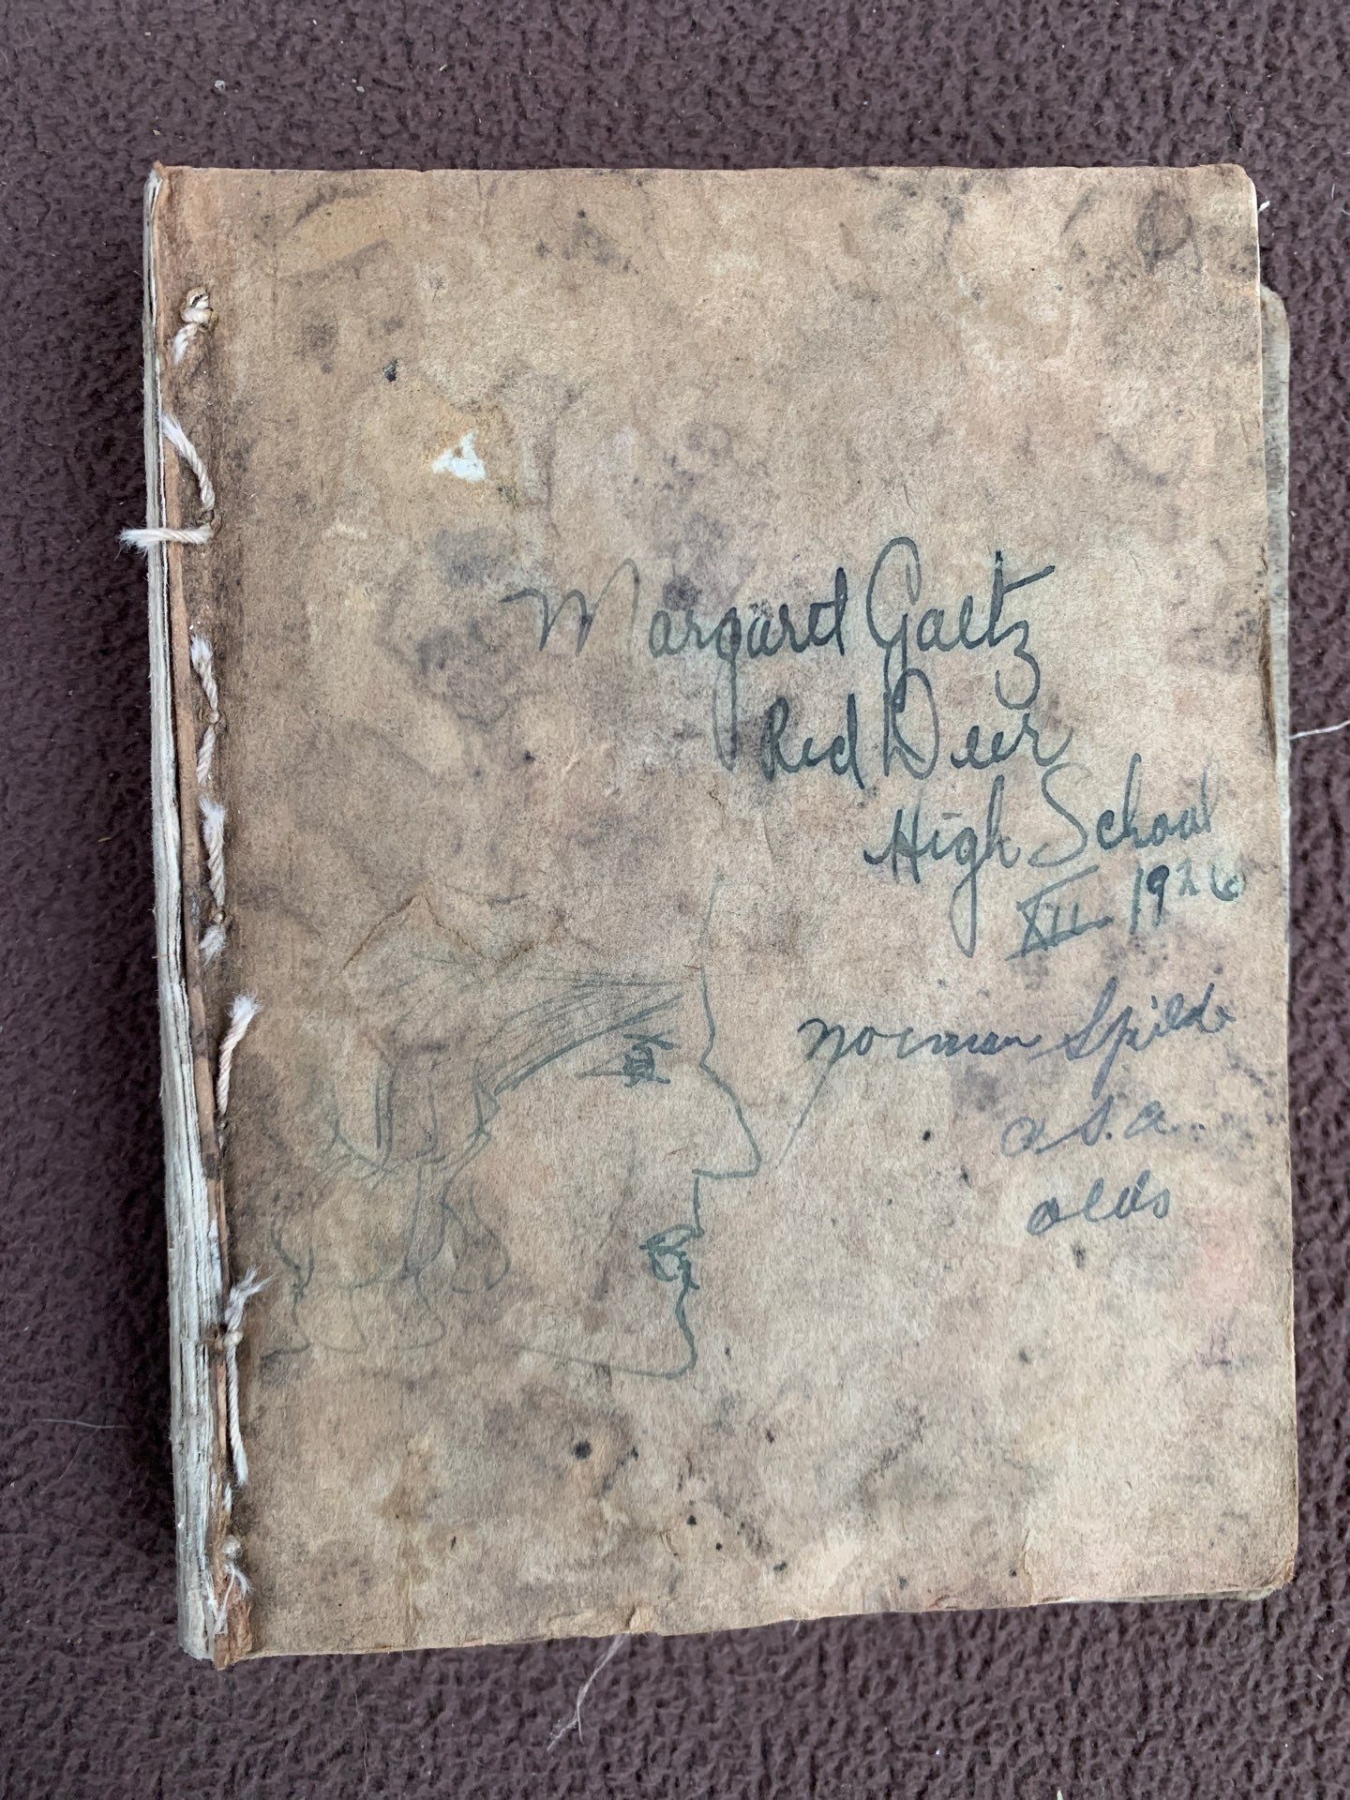 Margaret Gaetz
Red Deer
High School
XII 1926
Norman Spilde
O.S.A.
Olds